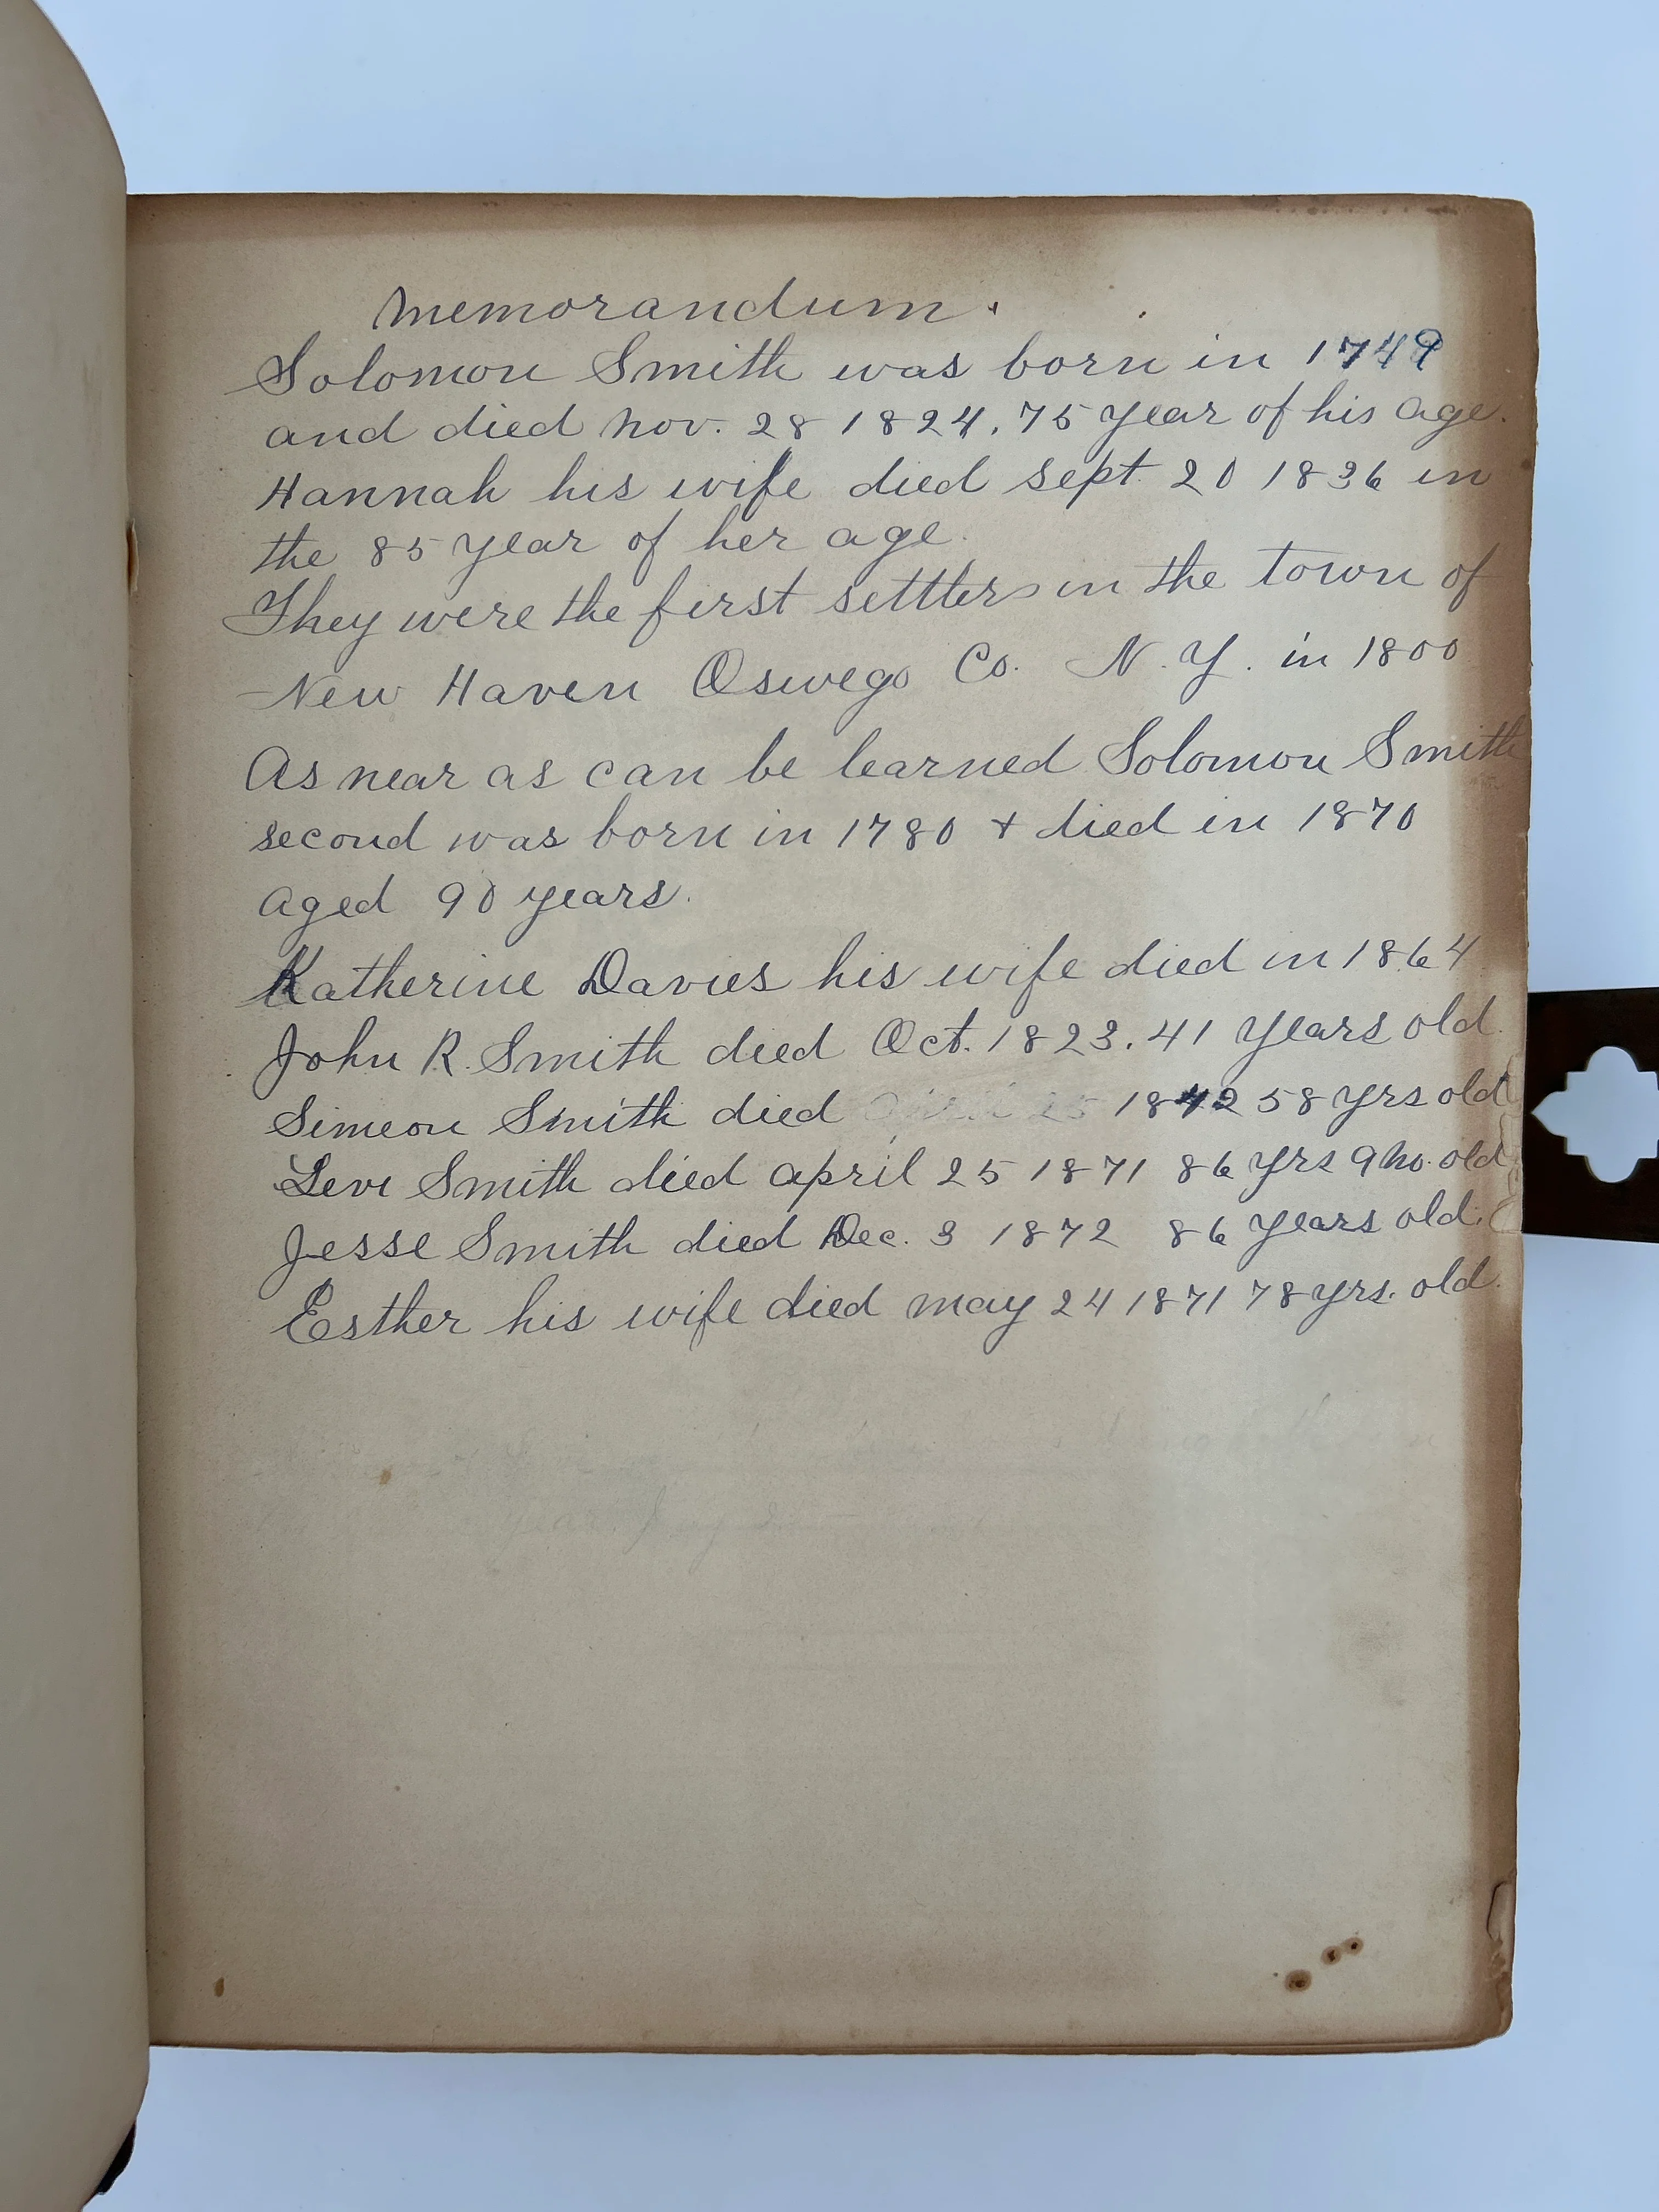 Memorandum.
Solomon Smith was born in 1749
and died Nov. 28 1824. 75 year of his age.
Hannah his wife died Sept. 20 1836 in
the 85 year of her age.
They were the first settlers in the town of
New Haven Oswego Co. N.Y. in 1800
As near as can be learned Solomon Smith
second was born in 1780 + died in 1870
aged 90 years.
Katherine Davies his wife died in 1864
John R. Smith died Oct. 1823. 41 years old.
Simeon Smith died 1842 58 yrs old
Levi Smith died april 25 1871 86 yrs 9 mo. old
Jesse Smith died Dec. 3 1872 86 years old.
Esther his wife died may 24 1871 78 yrs. old.